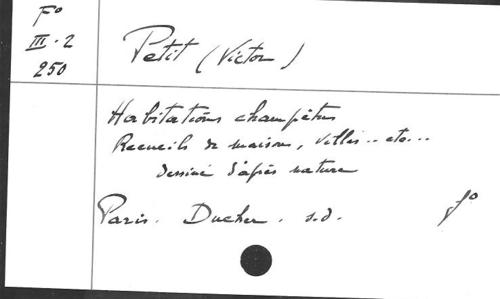 Fº
III. 2
250
Petit (Victor)
Habitations champêtres
Recueils de maisons, villas... etc...
dessiné d'après nature
Paris. Ducher. s.d. fº